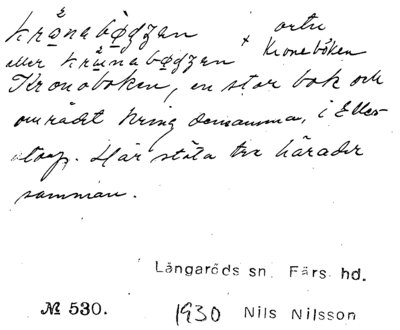 krônabø̀gʒan × ortn
eller krúnabøgʒan Kroneböken
Kronoboken, en stor bok och
området kring densamma, i Elles-
torp. Här stöta tre härader
samman.
Långaröds sn. Färs hd.
№ 530. 1930 Nils Nilsson